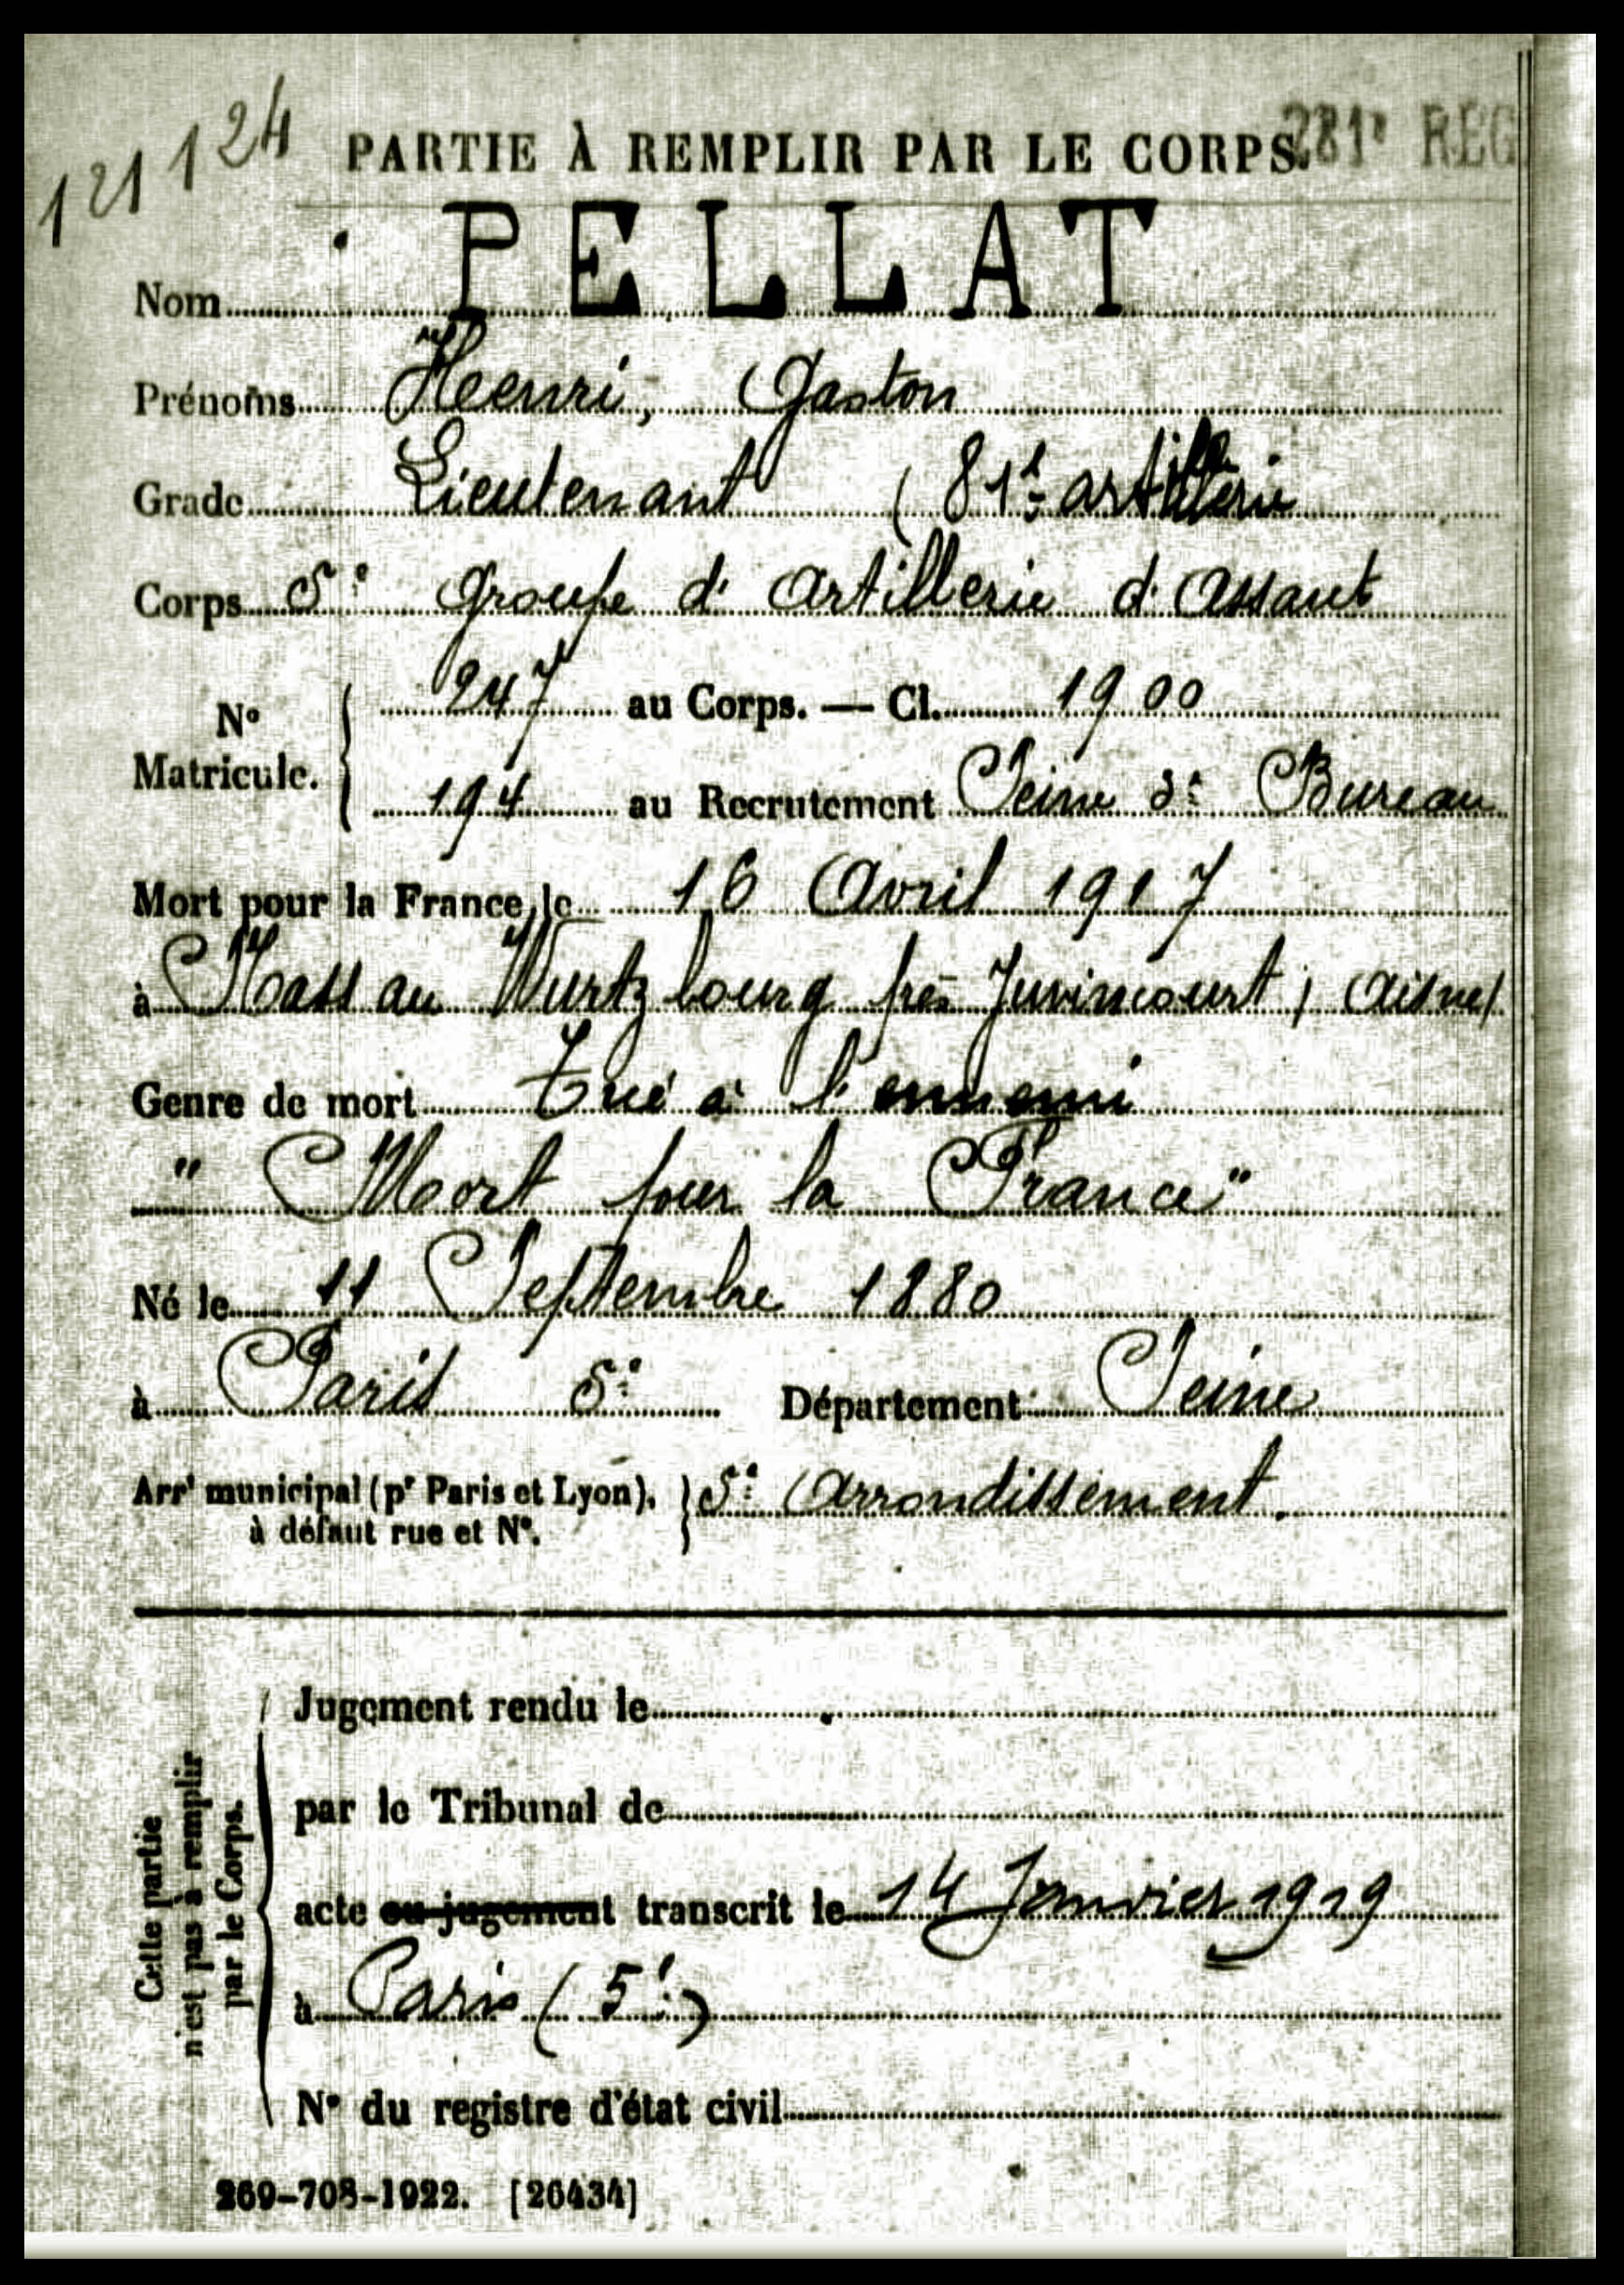 121124
PARTIE À REMPLIR PAR LE CORPS.
281e REG
Nom PELLAT
Prénoms Henri, Gaston
Grade Lieutenant (81e artillerie
Corps 5e groupe d'Artillerie d'Assaut
N° Matricule. { 247 au Corps. — Cl. 1900
194 au Recrutement Seine 3e Bureau
Mort pour la France le 16 Avril 1917
à au Wurtzbourg près Juvincourt (Aisne)
Genre de mort Tué à l'ennemi
" Mort pour la France "
Né le 11 Septembre 1880
à Paris 5e Département Seine
Arrt municipal (pr Paris et Lyon), à défaut rue et N°. } 5e Arrondissement.
Cette partie n'est pas à remplir par le Corps.
Jugement rendu le
par le Tribunal de
acte ou jugement transcrit le 14 Janvier 1919
à Paris (5e)
N° du registre d'état civil
269-708-1922. [26434]